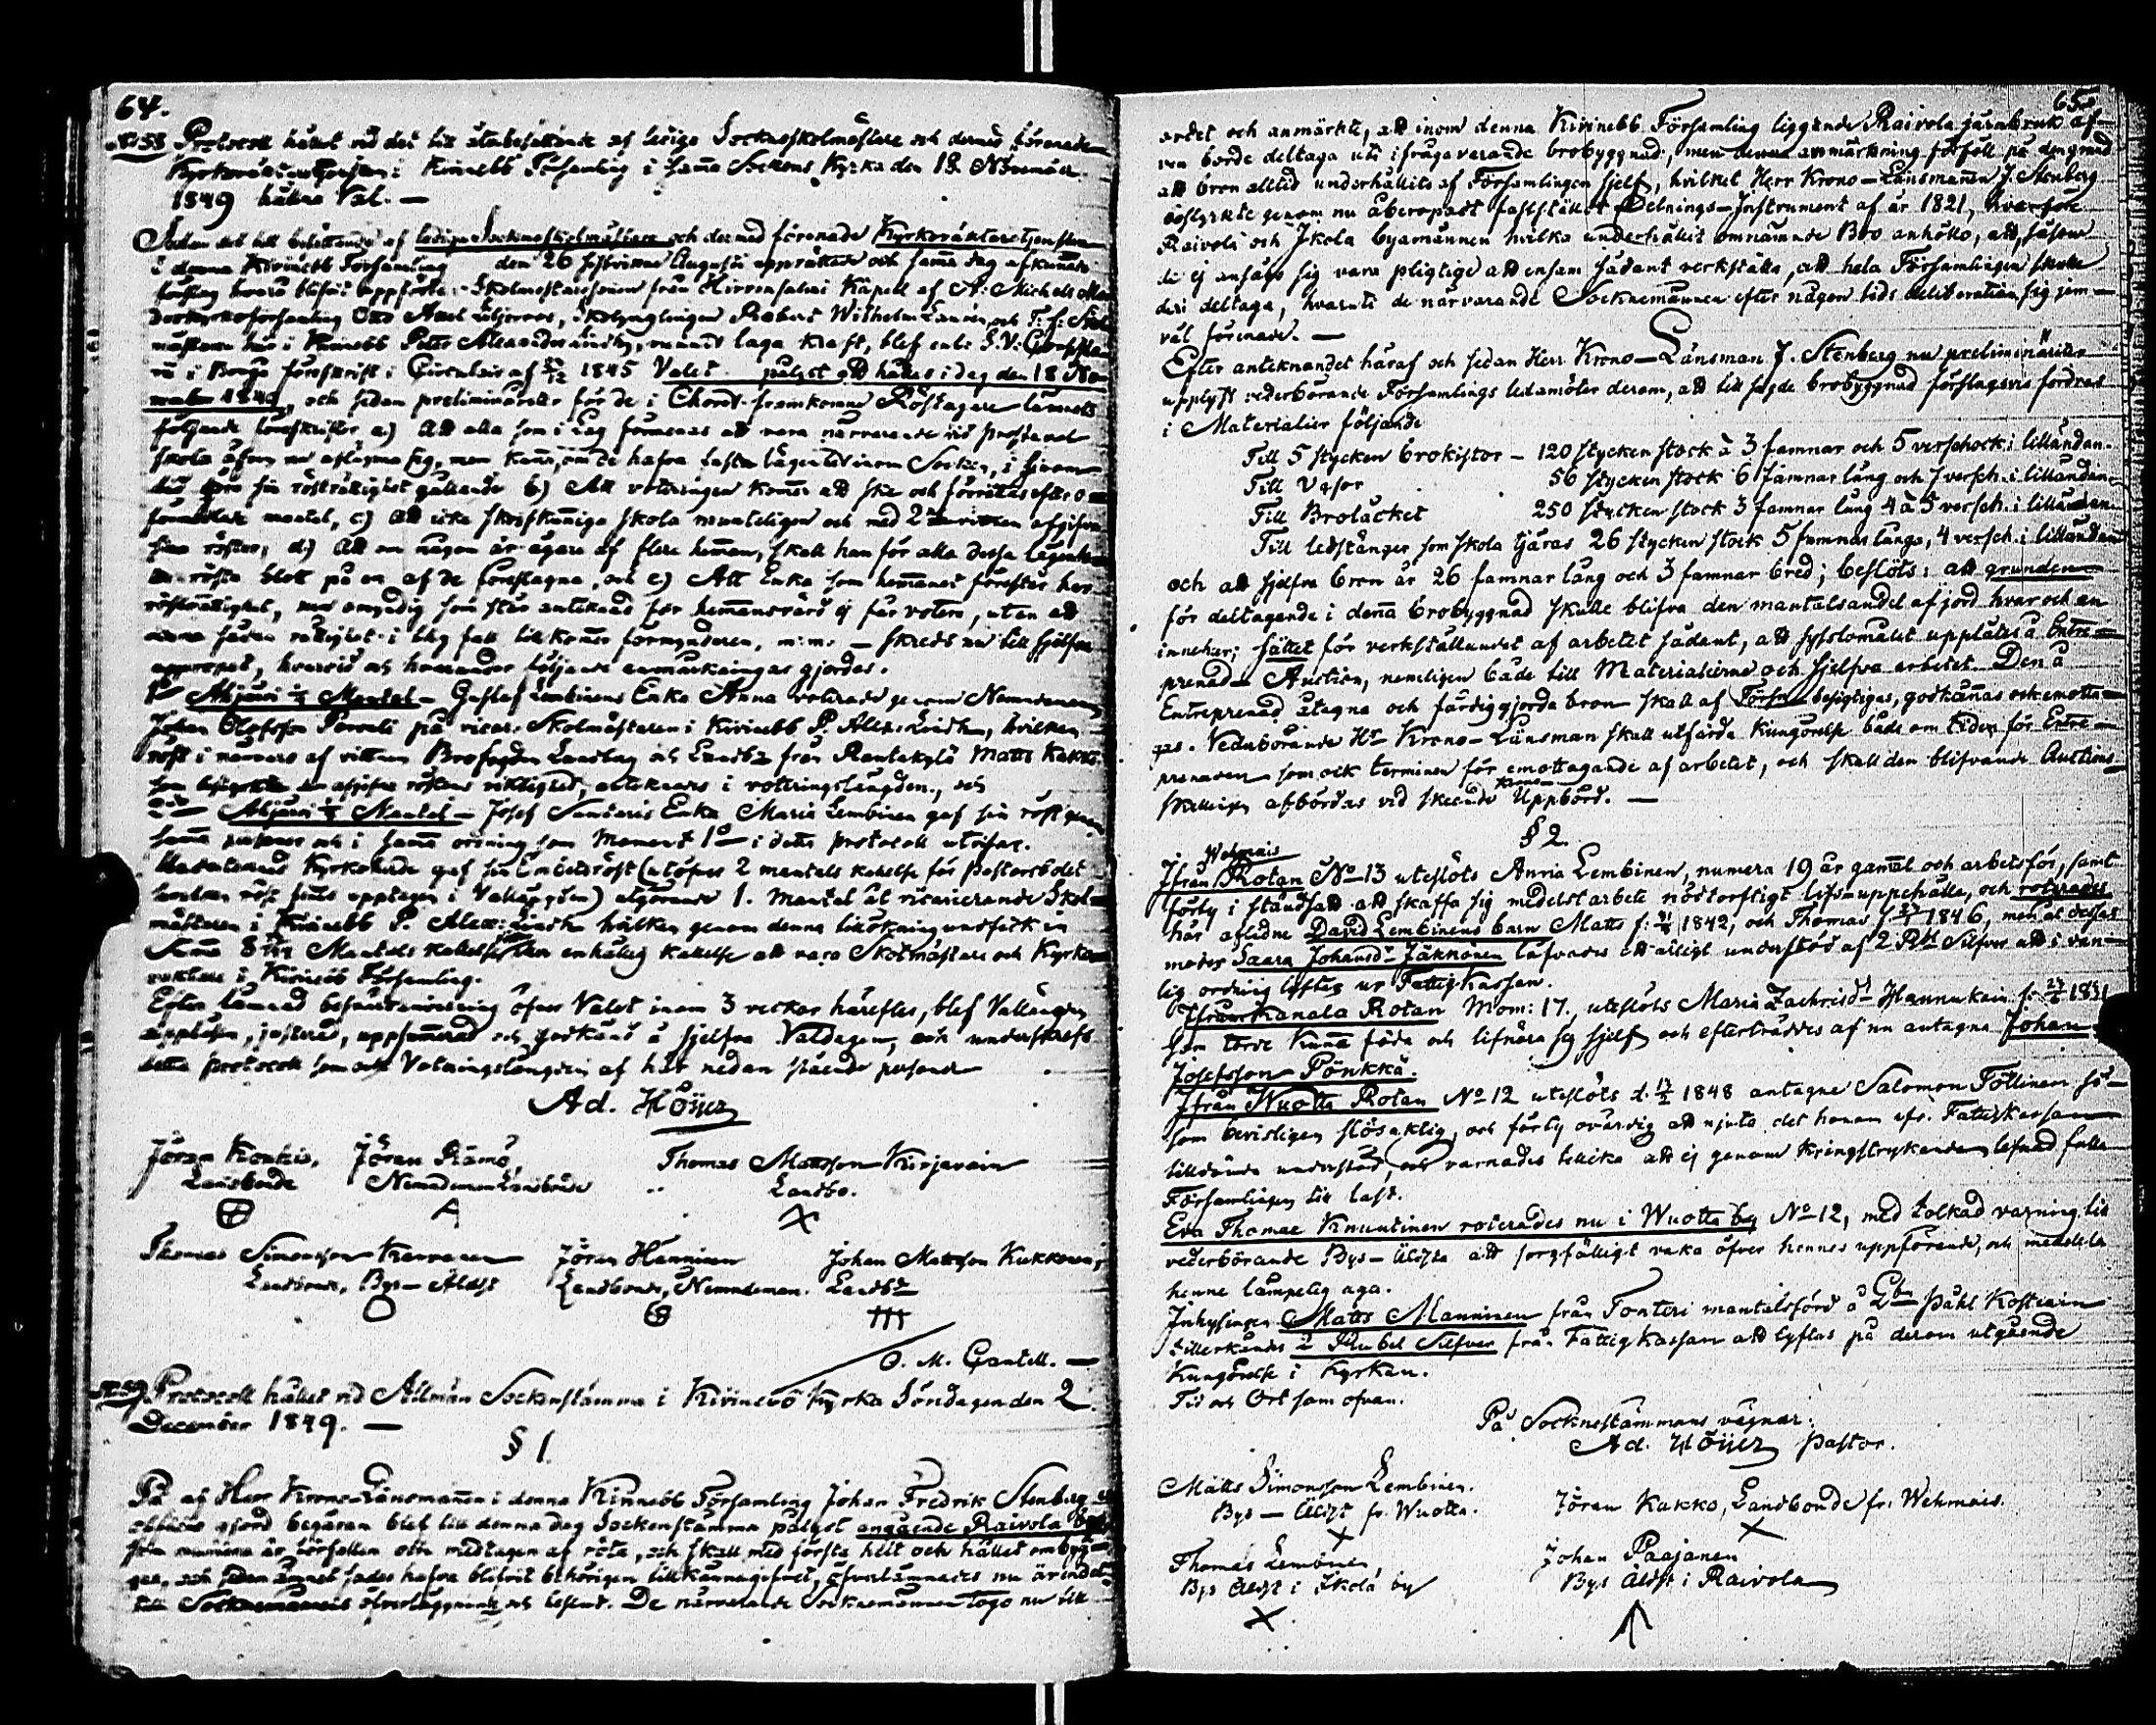 64.
N:o 58 Protocoll hållet vid det till återbesättande af lediga Sockneskolmästare och dermed förenade
Kyrkoväktaretjensten i Kivinebb Församling i samma Sockens Kyrka den 18 November
1849 hållna Val. —
Sedan det till besättande af lediga Sockneskolmästare och dermed förenade Kyrkoväktaretjensten
i denna Kivinebb Församling den 26 sistvikne Augusti upprättade och samma dag afkunnade
förslag hvarå blifvit uppförde: Skolmästaresonen från Hirvensalmi Kapell af S:t Michels
Otto Axel Liljeroos, Skolynglingen Robert Wilhelm Lander och
mästaren här i Kivinebb Petter Alexander Lindh, vunnit laga kraft, blef enl:
i Borgå föreskrift i Circulair af 1845 Valet pålyst att hållas i dag den 18 No-
vember 1849, och sedan preliminäriter för de i Choret framkomne Röstägare lämnats
följande föreskrifter a.) Att alla som i Lag förmenas att vara närvarande vid prestaval
skola äfven nu aflägsna sig, men kunna, om de hafva fasta lägenheter inom Socken, i
göra sin rösträttighet gällande b.) Att voteringen kommer att ske och förrättas efter o-
förmedlat mantal, c.) Att icke skrifkunniga skola munteligen och med 2:ne vittnen afgifva
sina röster; d.) Att om någon är ägare af flere hemman, skall han för alla dessa lägenhe-
ter rösta blott på en af de föreslagne, och e.) Att Enka som hemmanet förestår har
rösträttighet, men omyndig som står antecknad för hemmansvärd ej får votera, utan att
sådan rättighet i slikt fall tillkommer förmyndaren, m:m: — Skreds nu till sjelfva
uppropet, hvarvid och hvarunder följande anmärkningar gjordes.
1:o Ahjärvi ¼ Mantal — Gustaf Lembinens Enka Anna voterade genom Nemndeman
Johan Olofsson Porvali på vicar: Skolmästaren i Kivinebb P. Alex: Lindh, hvilken
röst i närvaro af vittnen Brofogden Landbo och Landb: från Rantakylä Matts Kakko
som afgifne röstens riktighet, antecknades i voteringslängden., och
2:o Ahjärvi ¼ Mantal — Josef Sundaris Enka Maria Lembinen gaf sin röst genom
samma personer och i samma ordning som Moment 1:o i detta protocoll utvisar.
Kyrkoherde gaf sin Embetsröst (utöfver 2 mantals kallelse för Pastorsbolet
hvilken röst finns upptagen i Vallängden) utgörande 1. Mantal åt vicarierande Skol-
mästaren i Kivinebb P. Alex: Lindh hvilken genom denna tillökning undfick in
Summa Mantals kallelse enhällig kallelse att vara Skolmästare och Kyrko-
väktare i Kivinebb Församling.
Efter lämnad besvärshänvisning öfver Valet inom 3 veckor härefter, blef Vallängden
uppläsen, justerad, uppsummerad och godkänd å sjelfva Valdagen, och underskrefs
detta protocoll som och Voteringslängden af här nedan stående personer
Ad. Höijer
Jöran Konkio, Jöran Rämö, Thomas Mattsson Kirjavain
Landbonde Nemndeman Landbonde Landbo.
Thomas Simonsson Kervenen Jöran Hanninen Johan Mattsson Kukkonen,
Landbonde, Bys-Äldst Landbonde, Nemndeman. Landb:
O. M. Gantell. —
N:o 59. Protocoll hållet vid Allmän Sockenstämma i Kivinebb Kyrka Söndagen den 2.
December 1849. —
§ 1.
På af Herr Krono-Länsmannen i denna Kivinebb Församling Johan Fredrik Stenberg
gjord begäran blef till denna dag Sockenstämma pålyst angående Raivola Bro
som numera är förfallen och medtagen af röta, och skall med första helt och hållet ombyg-
gas, och sedan ämnet sades hafva blifvit behörigen tillkännagifvet, öfverlämnades nu ärendet
till Socknemännens öfverläggning och beslut. De närvarande Socknemännen togo nu till
65.
ordet och anmärkte, att inom denna Kivinebb Församling liggande Raivola järnbruk äf-
ven borde deltaga uti ifrågavarande brobyggnad; men denna anmärkning förföll på den grund
att bron alltid underhållits af Församlingen sjelf, hvilket Herr Krono-Länsmannen J. Stenberg
bestyrkte genom nu åberopadt fastställdt Delnings-Instrument af år 1821, hvarföre
Raivola och Ikola byamännen hvilka underhållit omnämnde Bro anhöllo, att, såsom
de ej ansågo sig vara pligtige att ensam sådant verkställa, att hela Församlingen skulle
deri deltaga, hvaruti de närvarande Socknemännen efter någon tids deliberation sig jem-
väl förenade. —
Efter antecknandet häraf och sedan Herr Krono-Länsman J. Stenberg nu preliminäriter
upplyst vederbörande Församlings ledamöter derom, att till sagde brobyggnad förslagsvis fordras
i Materialier följande
Till 5 stycken brokistor — 120 stycken stock à 3 famnar och 5 verschock i lilländan.
Till Vasor 56 stycken stock 6 famnar lång och 7 versch. i lilländan
Till Brolacket 250 stycken stock 3 famnar lång 4 à 5 versch. i lilländan
Till ledstänger som skola tjäras 26 stycken stock 5 famnar långa, 4 versch. i lilländan
och att sjelfva bron är 26 famnar lång och 3 famnar bred; beslöts: att grunden
för deltagande i denna brobyggnad skulle blifva den mantalsandel af jord hvar och en
innehar; sättet för verkställandet af arbetet sådant, att sysslomålet upplåtes å Entre-
prenad-Auction, nemligen både till Materialierne och sjelfva arbetet. Den å
Entreprenad åtagna och färdiggjorda bron skall af Förs:n besigtigas, godkännas och emotta-
gas. Vederbörande H:r Krono-Länsman skall utfärda Kungörelse både om tiden för Entre-
prenaden som ock terminen för emottagande af arbetet, och skall den blifvande Auctions-
skillingen afbördas vid skeende Krono Uppbörd. —
§ 2.
Ifrån Wehmais Rotan N:o 13 uteslöts Anna Lembinen, numera 19 år gammal och arbetsför, samt
förty i stånd satt att skaffa sig medelst arbete nödtorftigt lifs-uppehälle, och roterades
här aflidne David Lembinens barn Matts f. 1842, och Thomas f. 1846, men åt dessas
moder Saara Johansd:r Jäkkönen lofvades ett årligt understöd af 2 R:bl Silfver att i van-
lig ordning lyftas ur Fattig Kassan.
Ifrån Kanala Rotan Mom: 17., uteslöts Maria Zachrisd:r Hannukain f. 1831
som torde kunna föda och lifnära sig sjelf och efterträddes af nu antagna Johan
Josefsson Pönkkä.
Ifrån Wuotta Rotan N:o 12 uteslöts d. 1848 antagne Salomon Töllinen så-
som bevisligen slösaktig, och förty ovärdig att njuta det honom ifr. Fattigkassan
tilldömda understöd, och varnades tillika att ej genom Kringstrykande lefnad falla
Församlingen till last.
Eva Thomae Knuutinen roterades nu i Wuotta by N:o 12, med tolkad varning till
vederbörande Bys-Äldsta att sorgfälligt vaka öfver hennes uppförande, och meddela
henne lämpelig aga.
Inhysingen Matts Manninen från Tonteri mantalsförd å Påhl Kostiain
tillerkändes 2 Rubel Silfver från Fattigkassan att lyftas på derom utgående
Kungörelse i Kyrkan.
Tid och Ort som ofvan.
På Socknestämmans vägnar:
Ad. Höijer Pastor.
Matts Simonsson Lembinen.
Bys-Äldst fr. Wuotta. Jöran Kakko, Landbonde fr. Wehmais.
Thomas Lembinen, Johan Paajanen
Bys Äldst i Ikola by Bys Äldst i Raivola